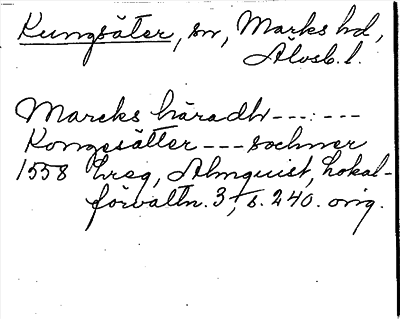 Kungsäter, sn, Marks hd,
Älvsb. l.
Marcks häradh ------
Kongesätter --- sochner
1558 hreg, Almquist, Lokal-
förvaltn. 3, s. 240. orig.